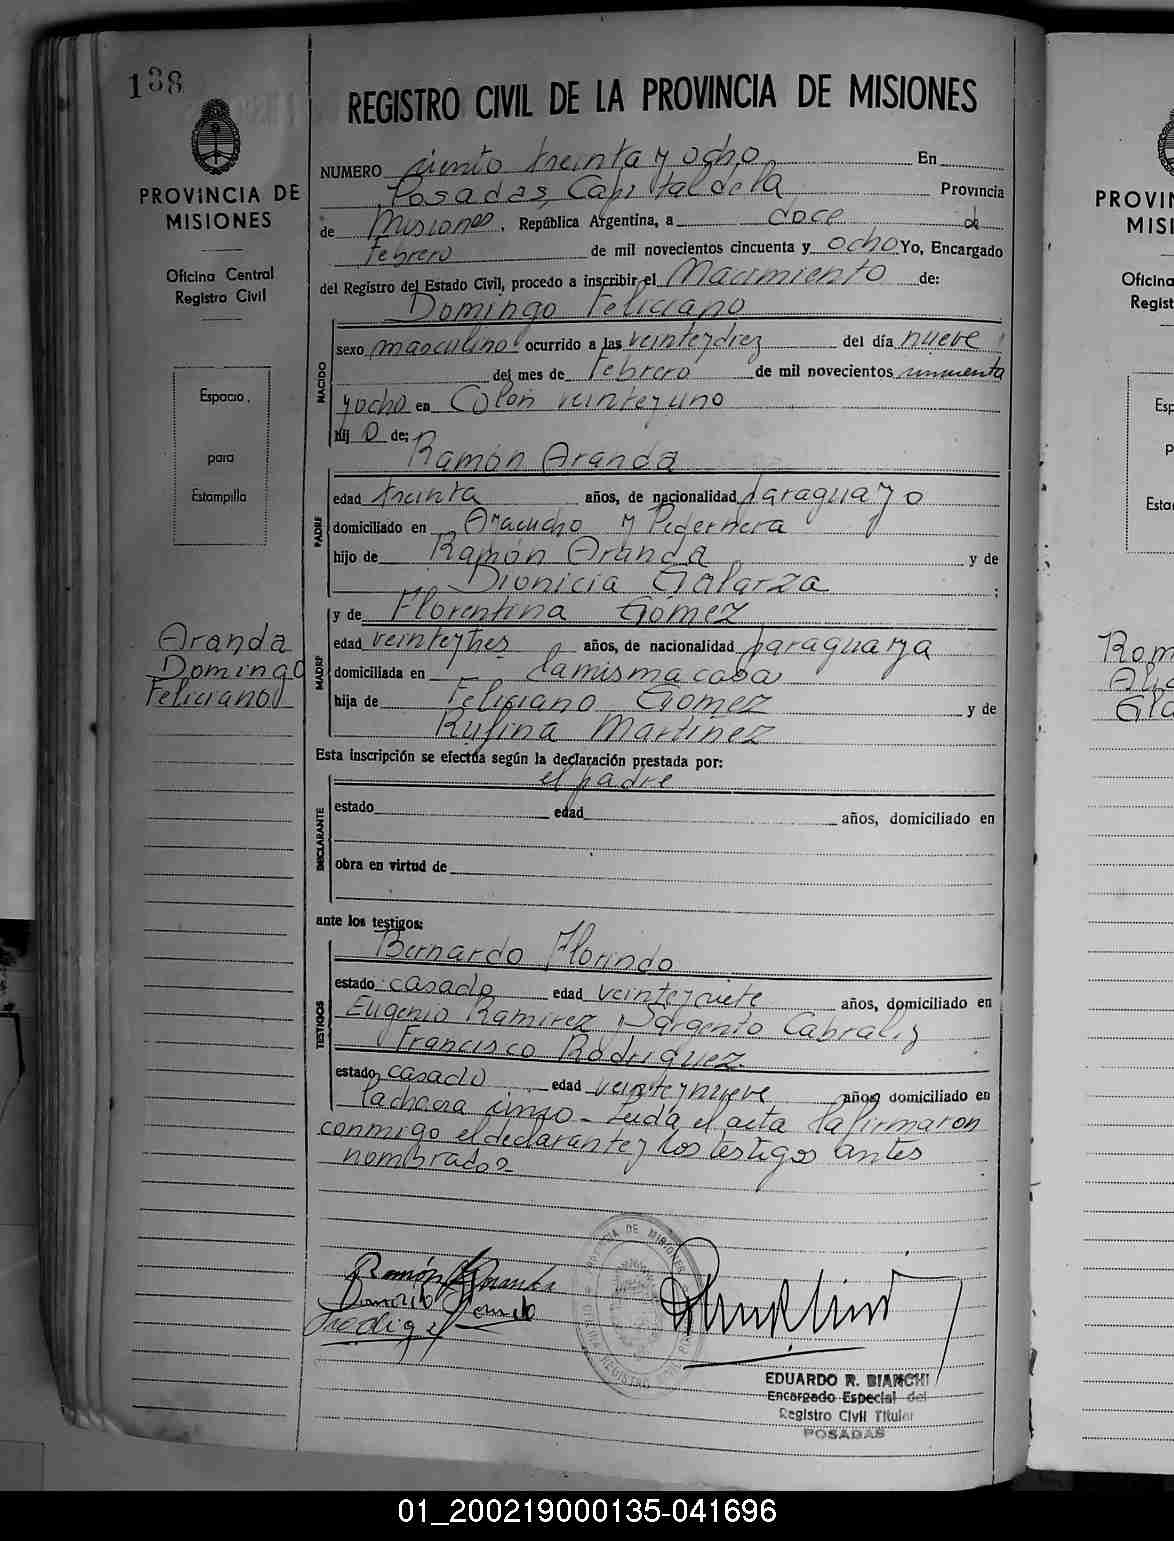 138
PROVINCIA DE
MISIONES
Oficina Central
Registro Civil
Espacio
para
Estampilla
Aranda
Domingo
Feliciano
REGISTRO CIVIL DE LA PROVINCIA DE MISIONES
NUMERO ciento treinta y ocho En
Posadas, Capital de la Provincia
de Misiones, República Argentina, a doce d
febrero de mil novecientos cincuenta y ocho Yo, Encargado
del Registro del Estado Civil, procedo a inscribir el Nacimiento de:
Domingo Feliciano
NACIDO
sexo masculino ocurrido a las veinte y diez del día nueve
del mes de febrero de mil novecientos cincuenta
y ocho en Colón veinte y uno
hij o de:
Ramón Aranda
PADRE
edad treinta años, de nacionalidad paraguayo
domiciliado en Ayacucho y Pedernera
hijo de Ramón Aranda y de
Dionicia Galarza ;
y de Florentina Gomez
MADRE
edad veinteytres años, de nacionalidad paraguaya
domiciliada en la misma casa
hija de Feliciano Gomez y de
Rufina Martinez
Esta inscripción se efectúa según la declaración prestada por:
el padre
DECLARANTE
estado edad años, domiciliado en
obra en virtud de
ante los testigos:
Bernardo Florindo
TESTIGOS
estado casado edad años, domiciliado en
Eugenio Ramirez y Sargento Cabral y
Francisco Rodriguez
estado casado edad veinteynueve años domiciliado en
la chacra cinco - Leida el acta la firmaron
conmigo el declarante y los testigos antes
nombrados-
Ramón Aranda
PROVINCIA DE MISIONES
EDUARDO R. BIANCHI
Encargado Especial del
Registro Civil Titular
POSADAS
01_200219000135-041696